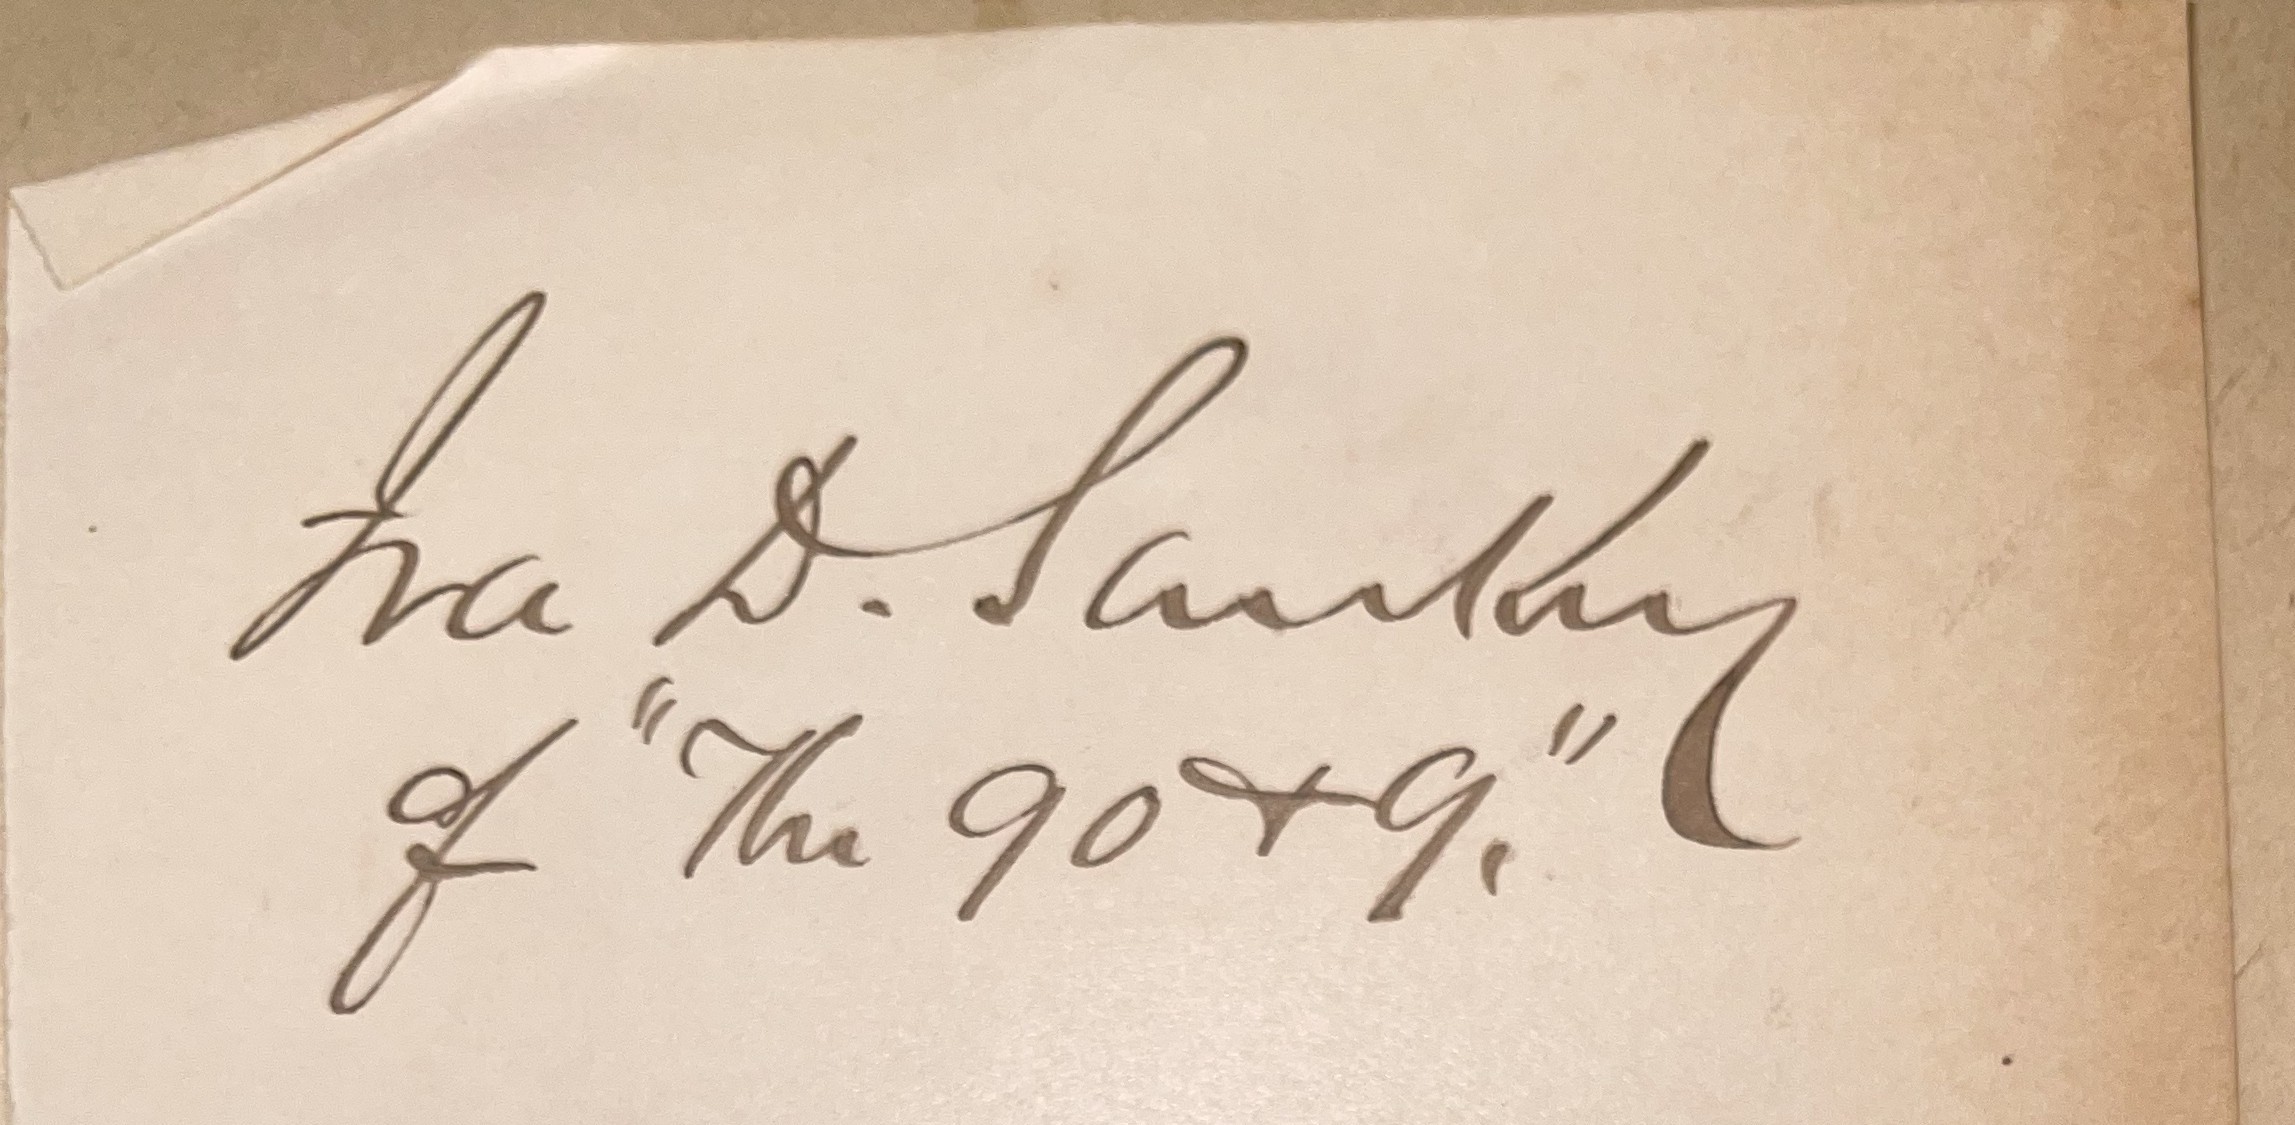 Ira D. Sankey
of "The 90 & 9."